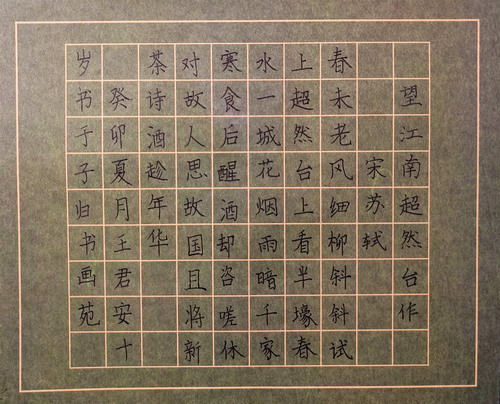 望江南超然台作
宋苏轼
春未老风细柳斜斜试
上超然台上看半壕春
水一城花烟雨暗千家
寒食后醒酒却咨嗟休
对故人思故国且将新
茶诗酒趁年华
癸卯夏月王君安十
岁书于子归书画苑